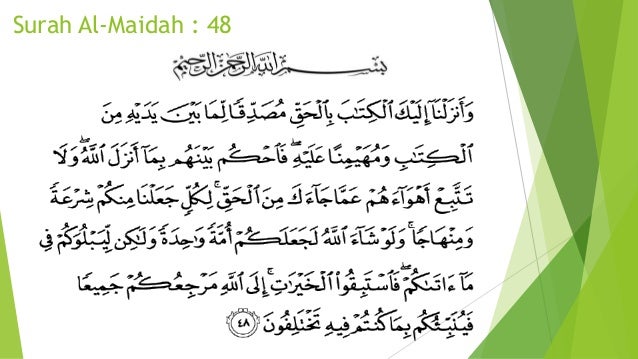 Surah Al-Maidah : 48
بِسْمِ اللَّهِ الرَّحْمَٰنِ الرَّحِيمِ
وَأَنزَلْنَآ إِلَيْكَ ٱلْكِتَٰبَ بِٱلْحَقِّ مُصَدِّقًا لِّمَا بَيْنَ يَدَيْهِ مِنَ
ٱلْكِتَٰبِ وَمُهَيْمِنًا عَلَيْهِ ۖ فَٱحْكُم بَيْنَهُم بِمَآ أَنزَلَ ٱللَّهُ ۖ وَلَا
تَتَّبِعْ أَهْوَآءَهُمْ عَمَّا جَآءَكَ مِنَ ٱلْحَقِّ ۚ لِكُلٍّ جَعَلْنَا مِنكُمْ شِرْعَةً
وَمِنْهَاجًا ۚ وَلَوْ شَآءَ ٱللَّهُ لَجَعَلَكُمْ أُمَّةً وَٰحِدَةً وَلَٰكِن لِّيَبْلُوَكُمْ فِى
مَآ ءَاتَىٰكُمْ ۖ فَٱسْتَبِقُوا۟ ٱلْخَيْرَٰتِ ۚ إِلَى ٱللَّهِ مَرْجِعُكُمْ جَمِيعًا
فَيُنَبِّئُكُم بِمَا كُنتُمْ فِيهِ تَخْتَلِفُونَ ٤٨